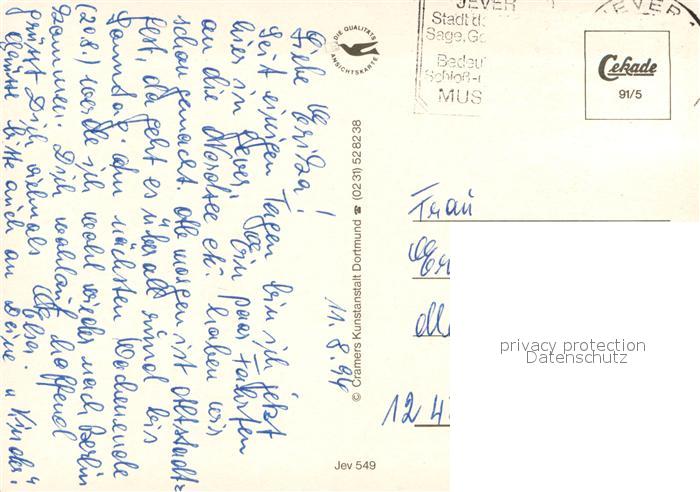 11.8.94
Liebe Erika!
Seit einigen Tagen bin ich jetzt
hier in Jever. Ein paar Fahrten
an die Nordsee etc. haben wir
schon gemacht. Ab morgen ist Altstadt=
fest, da geht es überall rund bis
Samstag. Am nächsten Wochenende
(20.8.) werde ich wohl wieder nach Berlin
kommen. Dich wohlauf hoffend
grüßt Dich vielmals
Grüsse bitte auch an Deine "Kinder"
DIE QUALITÄTS
ANSICHTSKARTE
© Cramers Kunstanstalt Dortmund ☎ (0231) 528238
Jev 549
JEVER
Stadt d
Sage, Ge
Bedeu
Schloß-
MUS
JEVER
Cekade
91/5
Frau
Er
12 4
privacy protection
Datenschutz